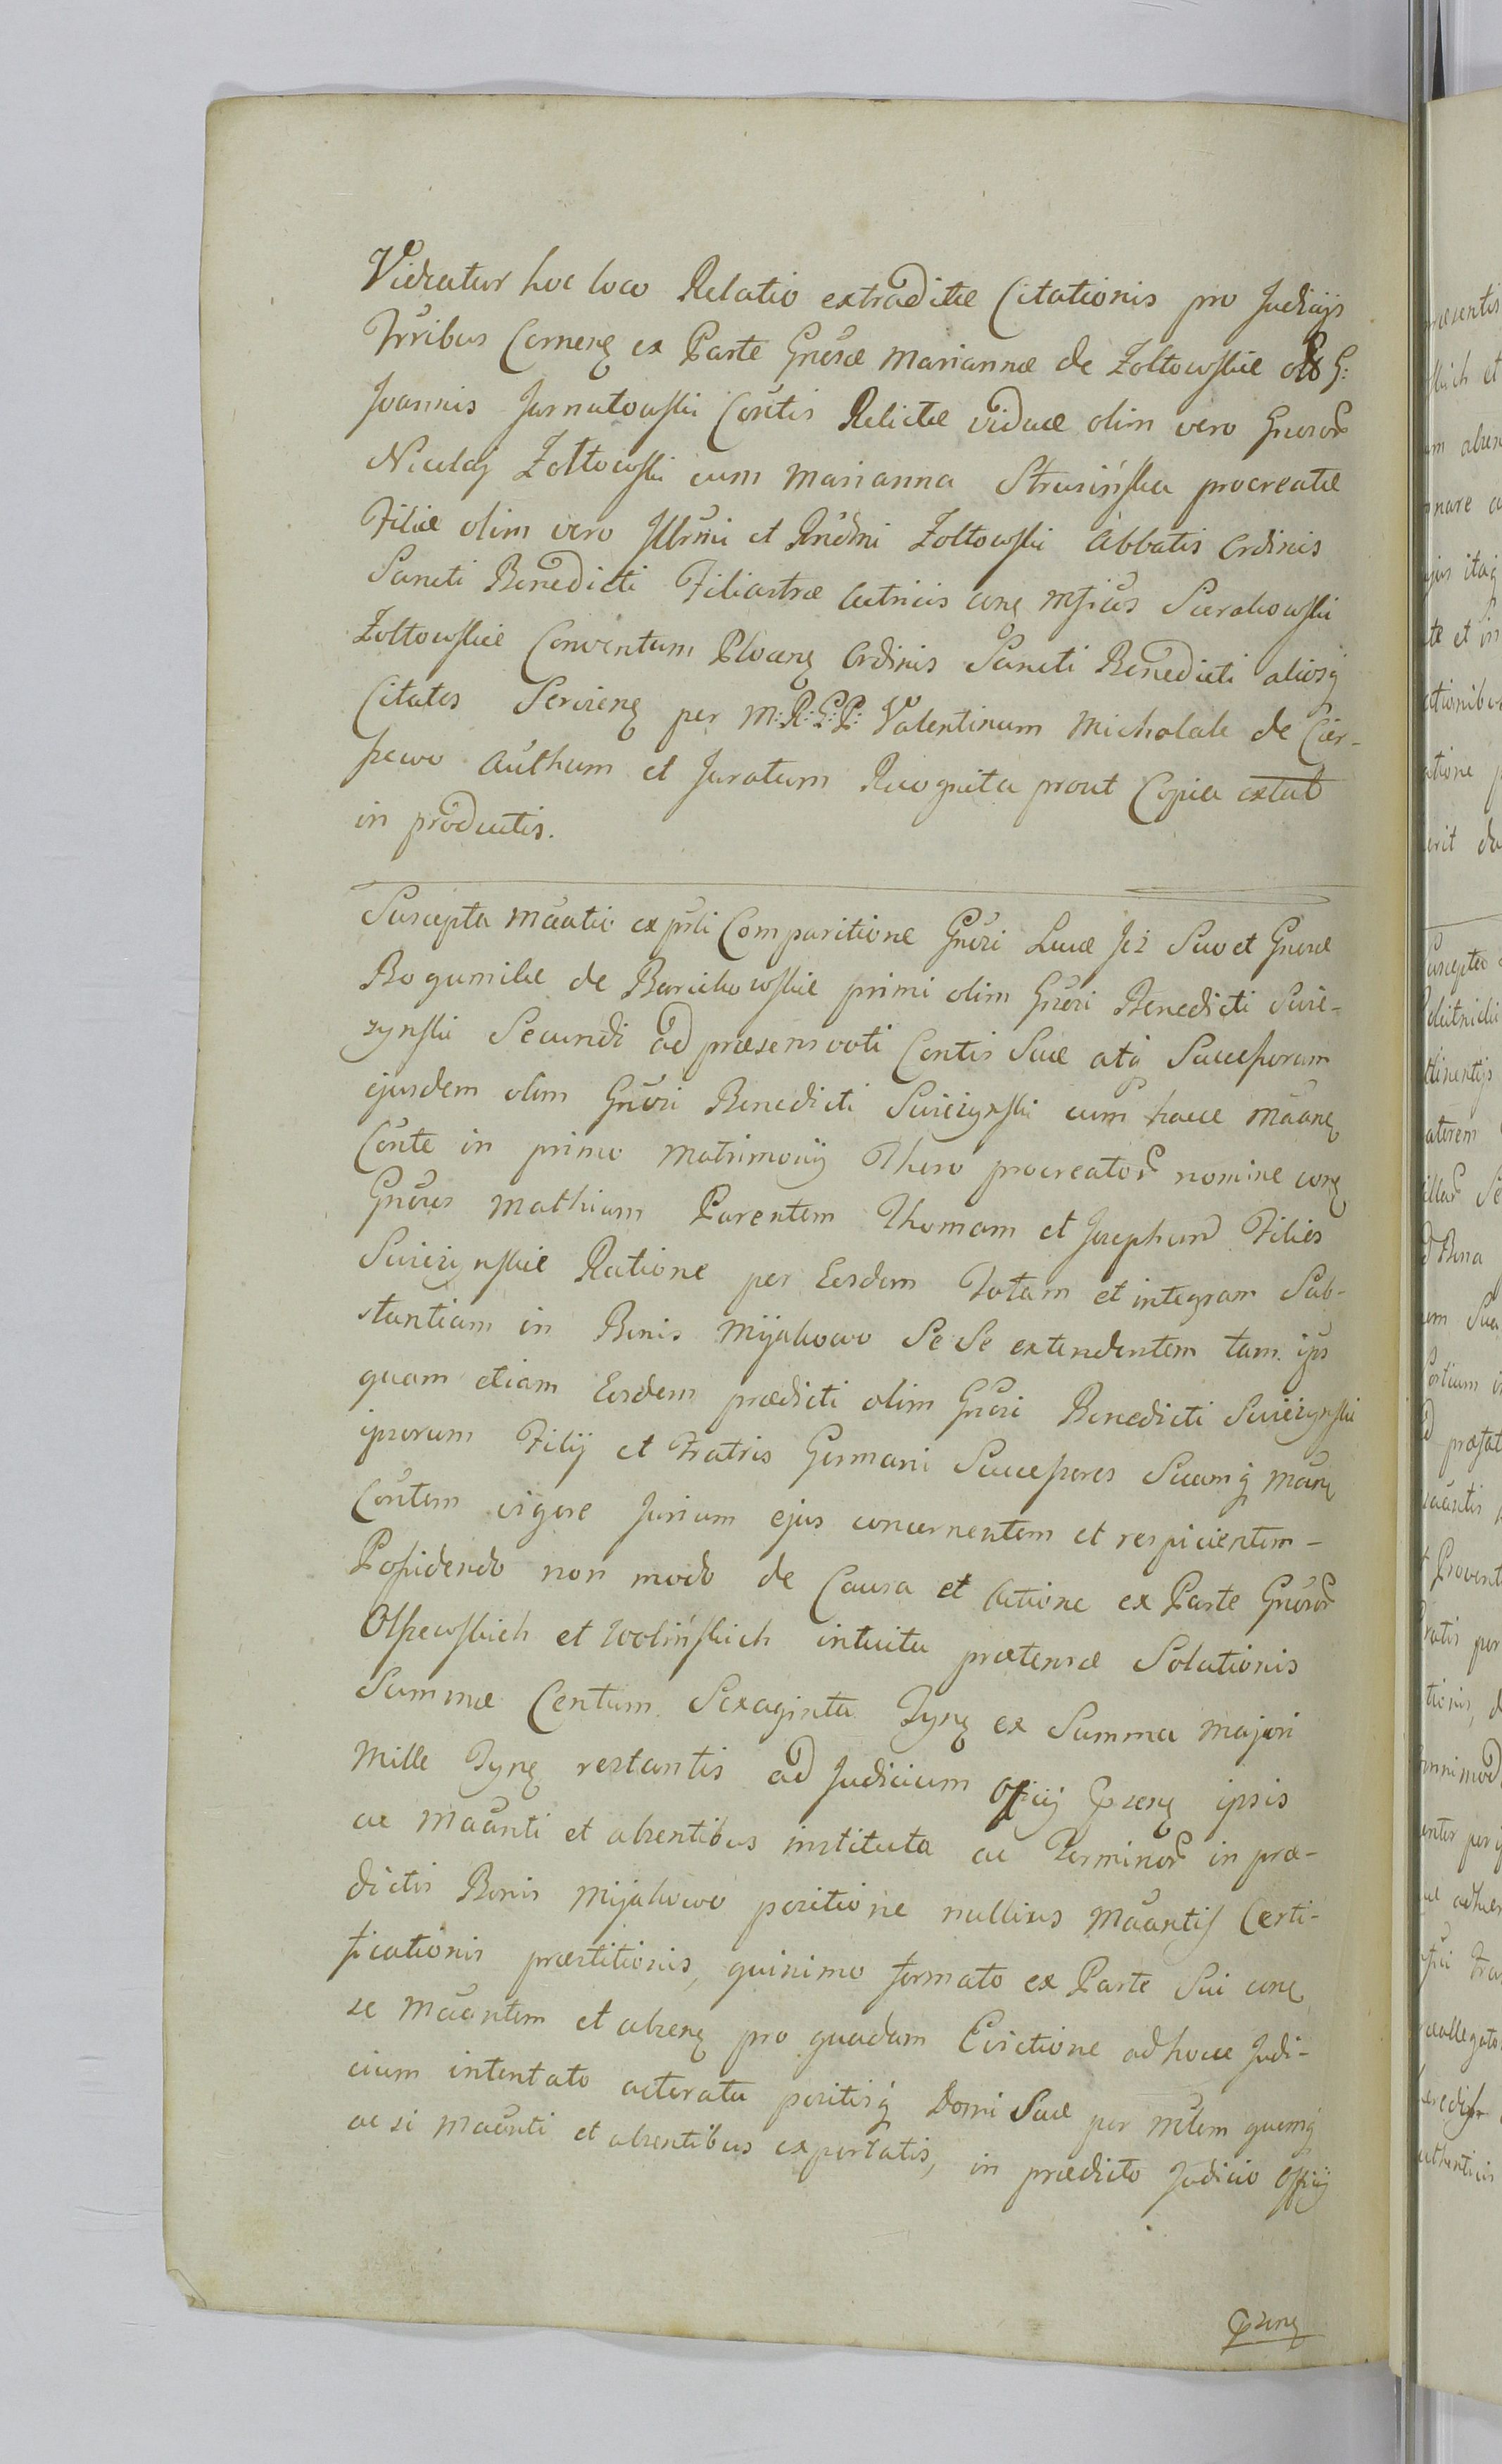 Videatur hoc loco Relatio extraditæ Citationis pro Judicijs
Trribus Cernen ex Parte Gnosæ Mariannæ de Zołtowskie olim G:
Joannis Jarnutowski Contis Relictæ viduæ olim vero Gnosor
Nicolaj Zołtowski cum Marianna Strusińska procreatæ
Filiæ olim vero Illrmi et Rndmi Zołtowski Abbatis Ordinis
Sancti Benedicti Filiastræ Actricis con Mficos Sierakowski
Zołtowskie Conventum Plocen Ordinis Sancti Benedicti aliosq
Citatos Servien per M:R:G:P: Valentinum Micholak de Cier-
pewo Authum et Juratum Recognita prout Copia extat
in productis.
Suscepta Maatio ex psti Comparitione Gnosi Lucæ Jeż Suo et Gnosæ
Bogumilæ de Baruchowskie primi olim Gnosi Benedicti Swie-
zynski Secundi ad præsens voti Contis Suæ atq Successorum
ejusdem olim Gnosi Benedicti Swiezynski cum hacce Maan
Conte in primo Matrimonij Thoro procreator nomine con
Gnosos Mathiam Parentem Thomam et Josephum Filios
Swiezynskie Ratione per Eosdem Totam et integram Sub-
stantiam in Bonis Mijakowo Se Se extendentem tam ips
quam etiam Eosdem prædicti olim Gnosi Benedicti Swiezynski
ipsorum Filij et Fratris Germani Successores Suamq Maan
Contem vigore Jurium ejus concernentem et respicientem -
Possidendo non modo de Causa et Actione ex Parte Gnosor
Olszewskich et Wolińskich intuitu prætensæ Solutionis
Summæ Centum Sexaginta Tyn ex Summa Majori
Mille Tyn restantis ad Judicium Officij ipsis
ac Maanti et absentibus instituta ac Terminor in præ-
dictis Bonis Mijakowo positione nullius Maantis Certi-
ficationis præstitionis, quinimo formato ex Parte Sui con
se Maantem et absen pro quadam Evictione ad hocce Judi-
cium intentato acteratu positisq Domi Suæ per Mtem quemq
ac si Maanti et absentibus exportatis, in prædicto Judicio Officij